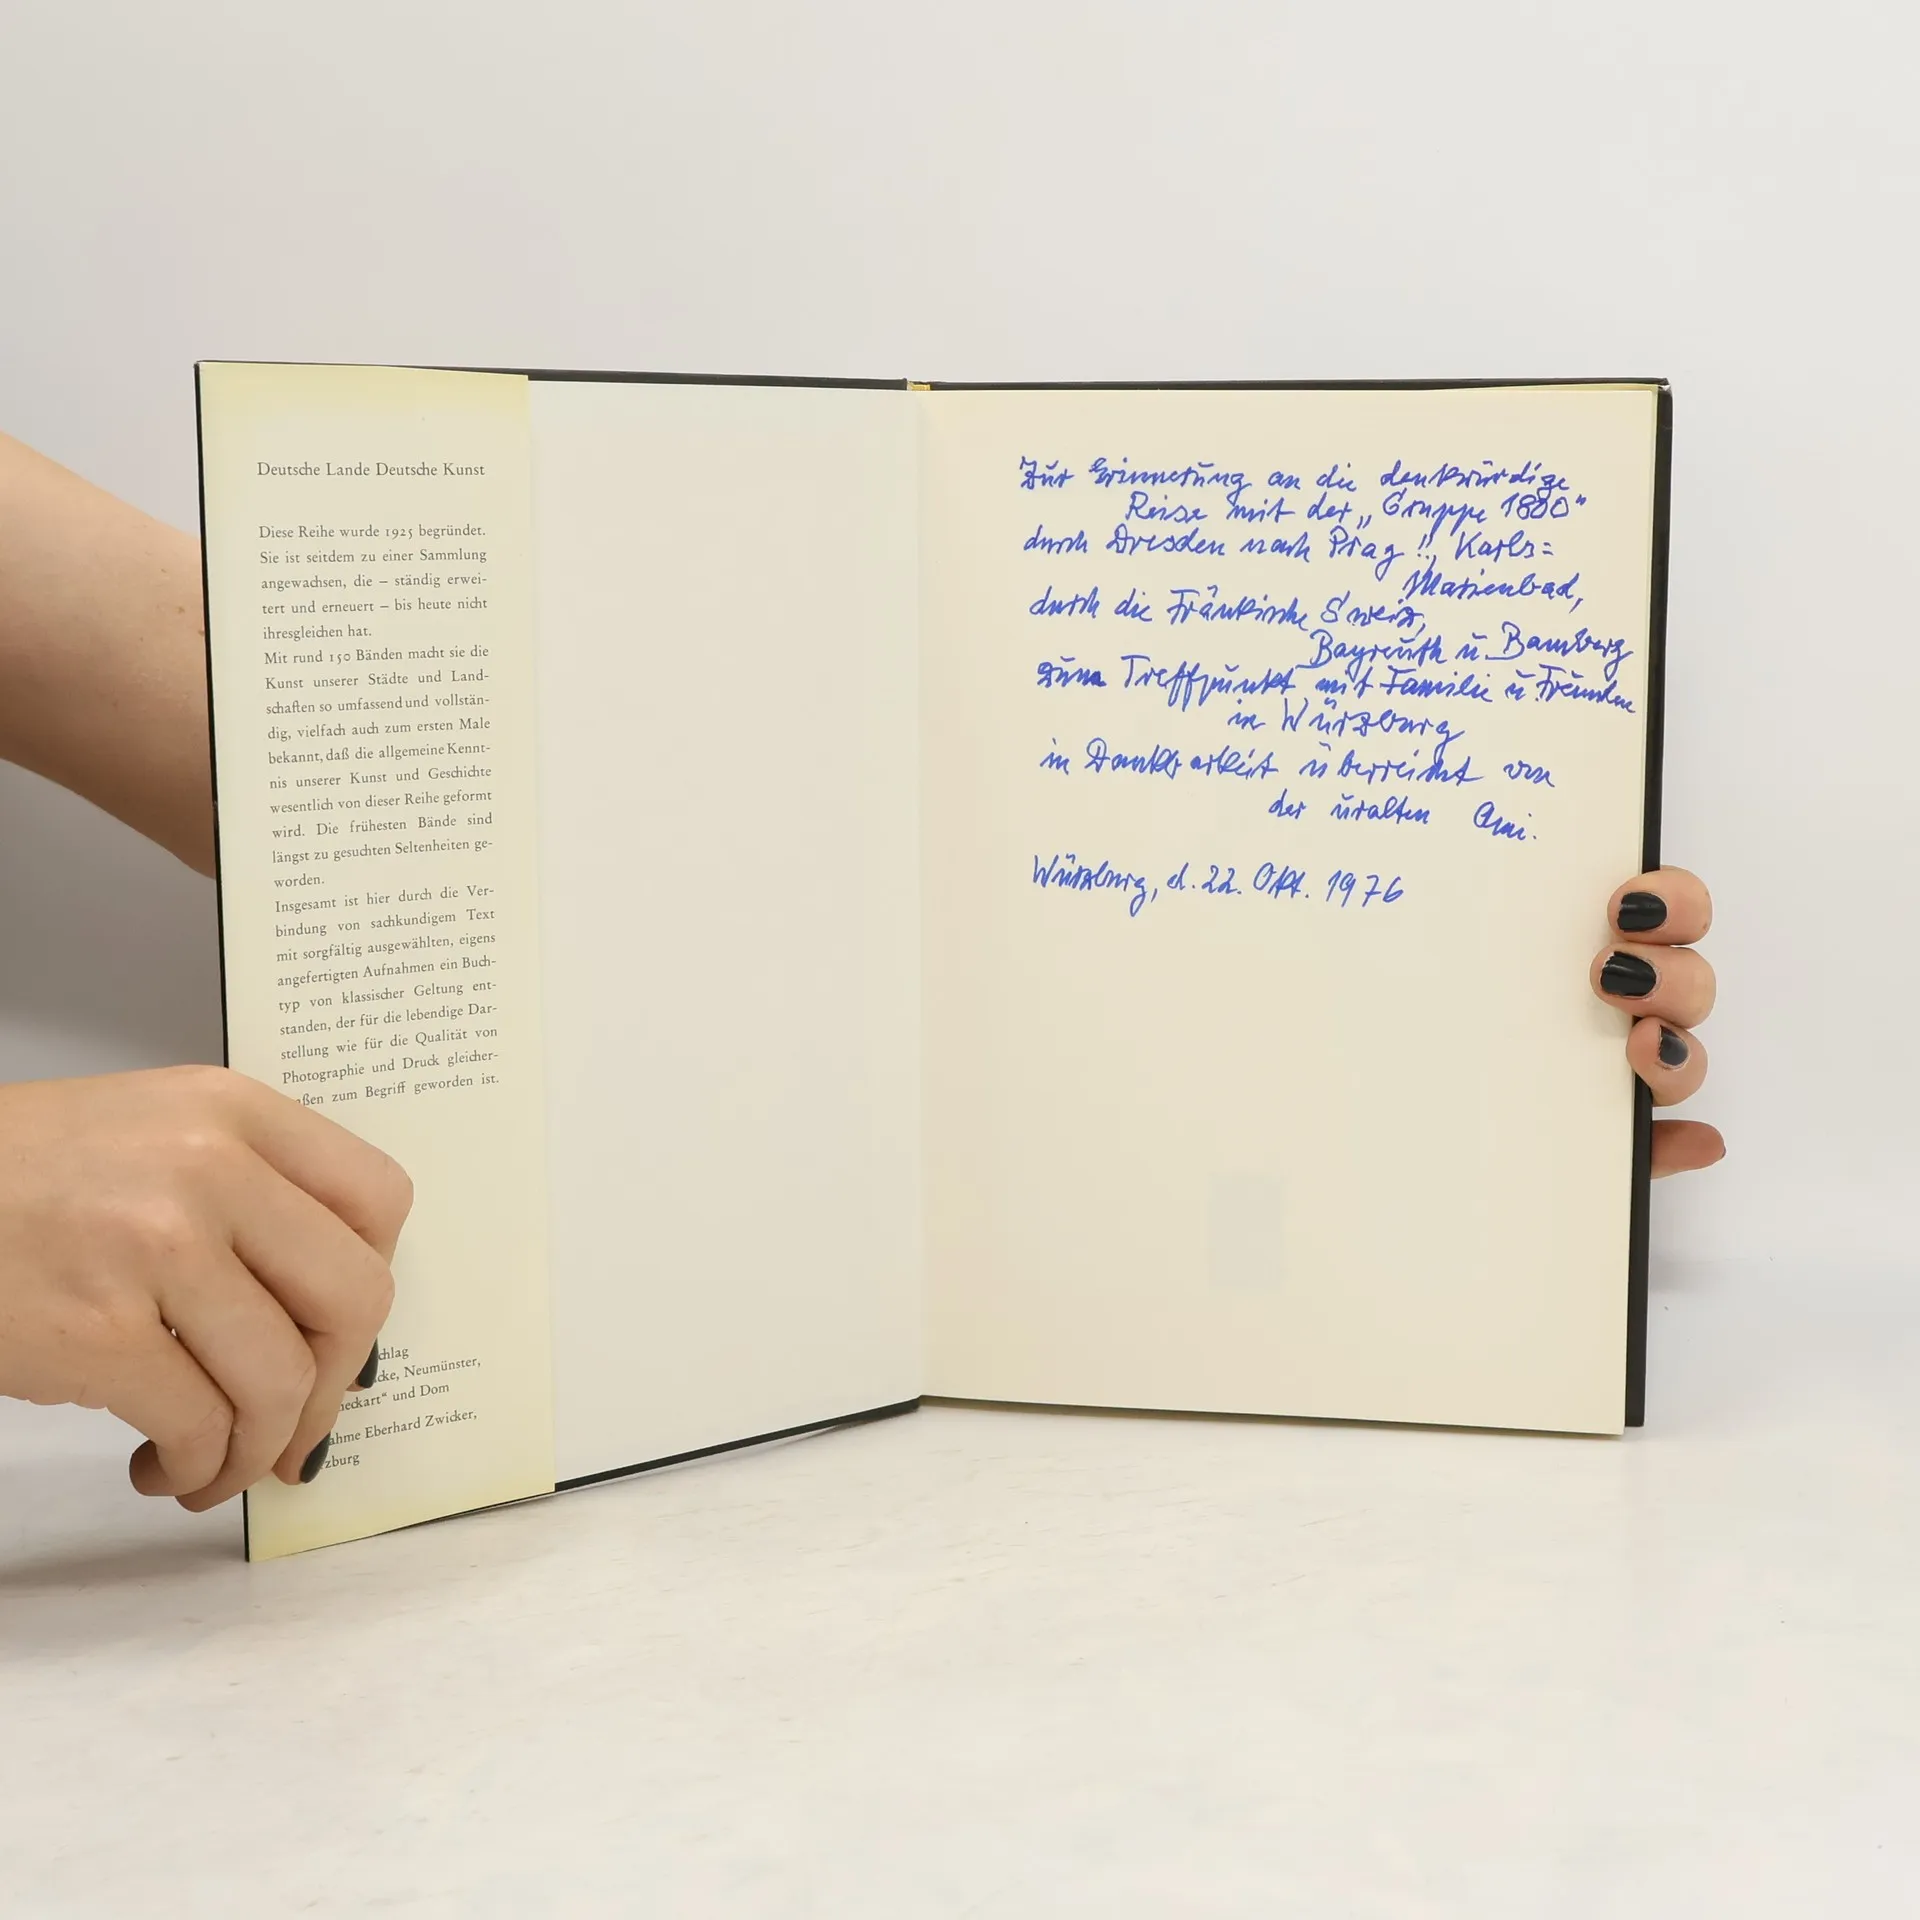 Deutsche Lande Deutsche Kunst
Diese Reihe wurde 1925 begründet.
Sie ist seitdem zu einer Sammlung
angewachsen, die – ständig erwei-
tert und erneuert – bis heute nicht
ihresgleichen hat.
Mit rund 150 Bänden macht sie die
Kunst unserer Städte und Land-
schaften so umfassend und vollstän-
dig, vielfach auch zum ersten Male
bekannt, daß die allgemeine Kennt-
nis unserer Kunst und Geschichte
wesentlich von dieser Reihe geformt
wird. Die frühesten Bände sind
längst zu gesuchten Seltenheiten ge-
worden.
Insgesamt ist hier durch die Ver-
bindung von sachkundigem Text
mit sorgfältig ausgewählten, eigens
angefertigten Aufnahmen ein Buch-
typ von klassischer Geltung ent-
standen, der für die lebendige Dar-
stellung wie für die Qualität von
Photographie und Druck gleicher-
aßen zum Begriff geworden ist.
chlag
cke, Neumünster,
neckart“ und Dom
ahme Eberhard Zwicker,
zburg
Zur Erinnerung an die denkwürdige
Reise mit der „Gruppe 1800“
durch Dresden nach Prag !!, Karls=
Marienbad,
durch die Fränkische Sweiz,
Bayreuth u. Bamberg
zum Treffpunkt mit Familie u Freunden
in Würzburg
in Dankbarkeit überreicht von
der uralten Omi.
Würzburg, d. 22. Okt. 1976